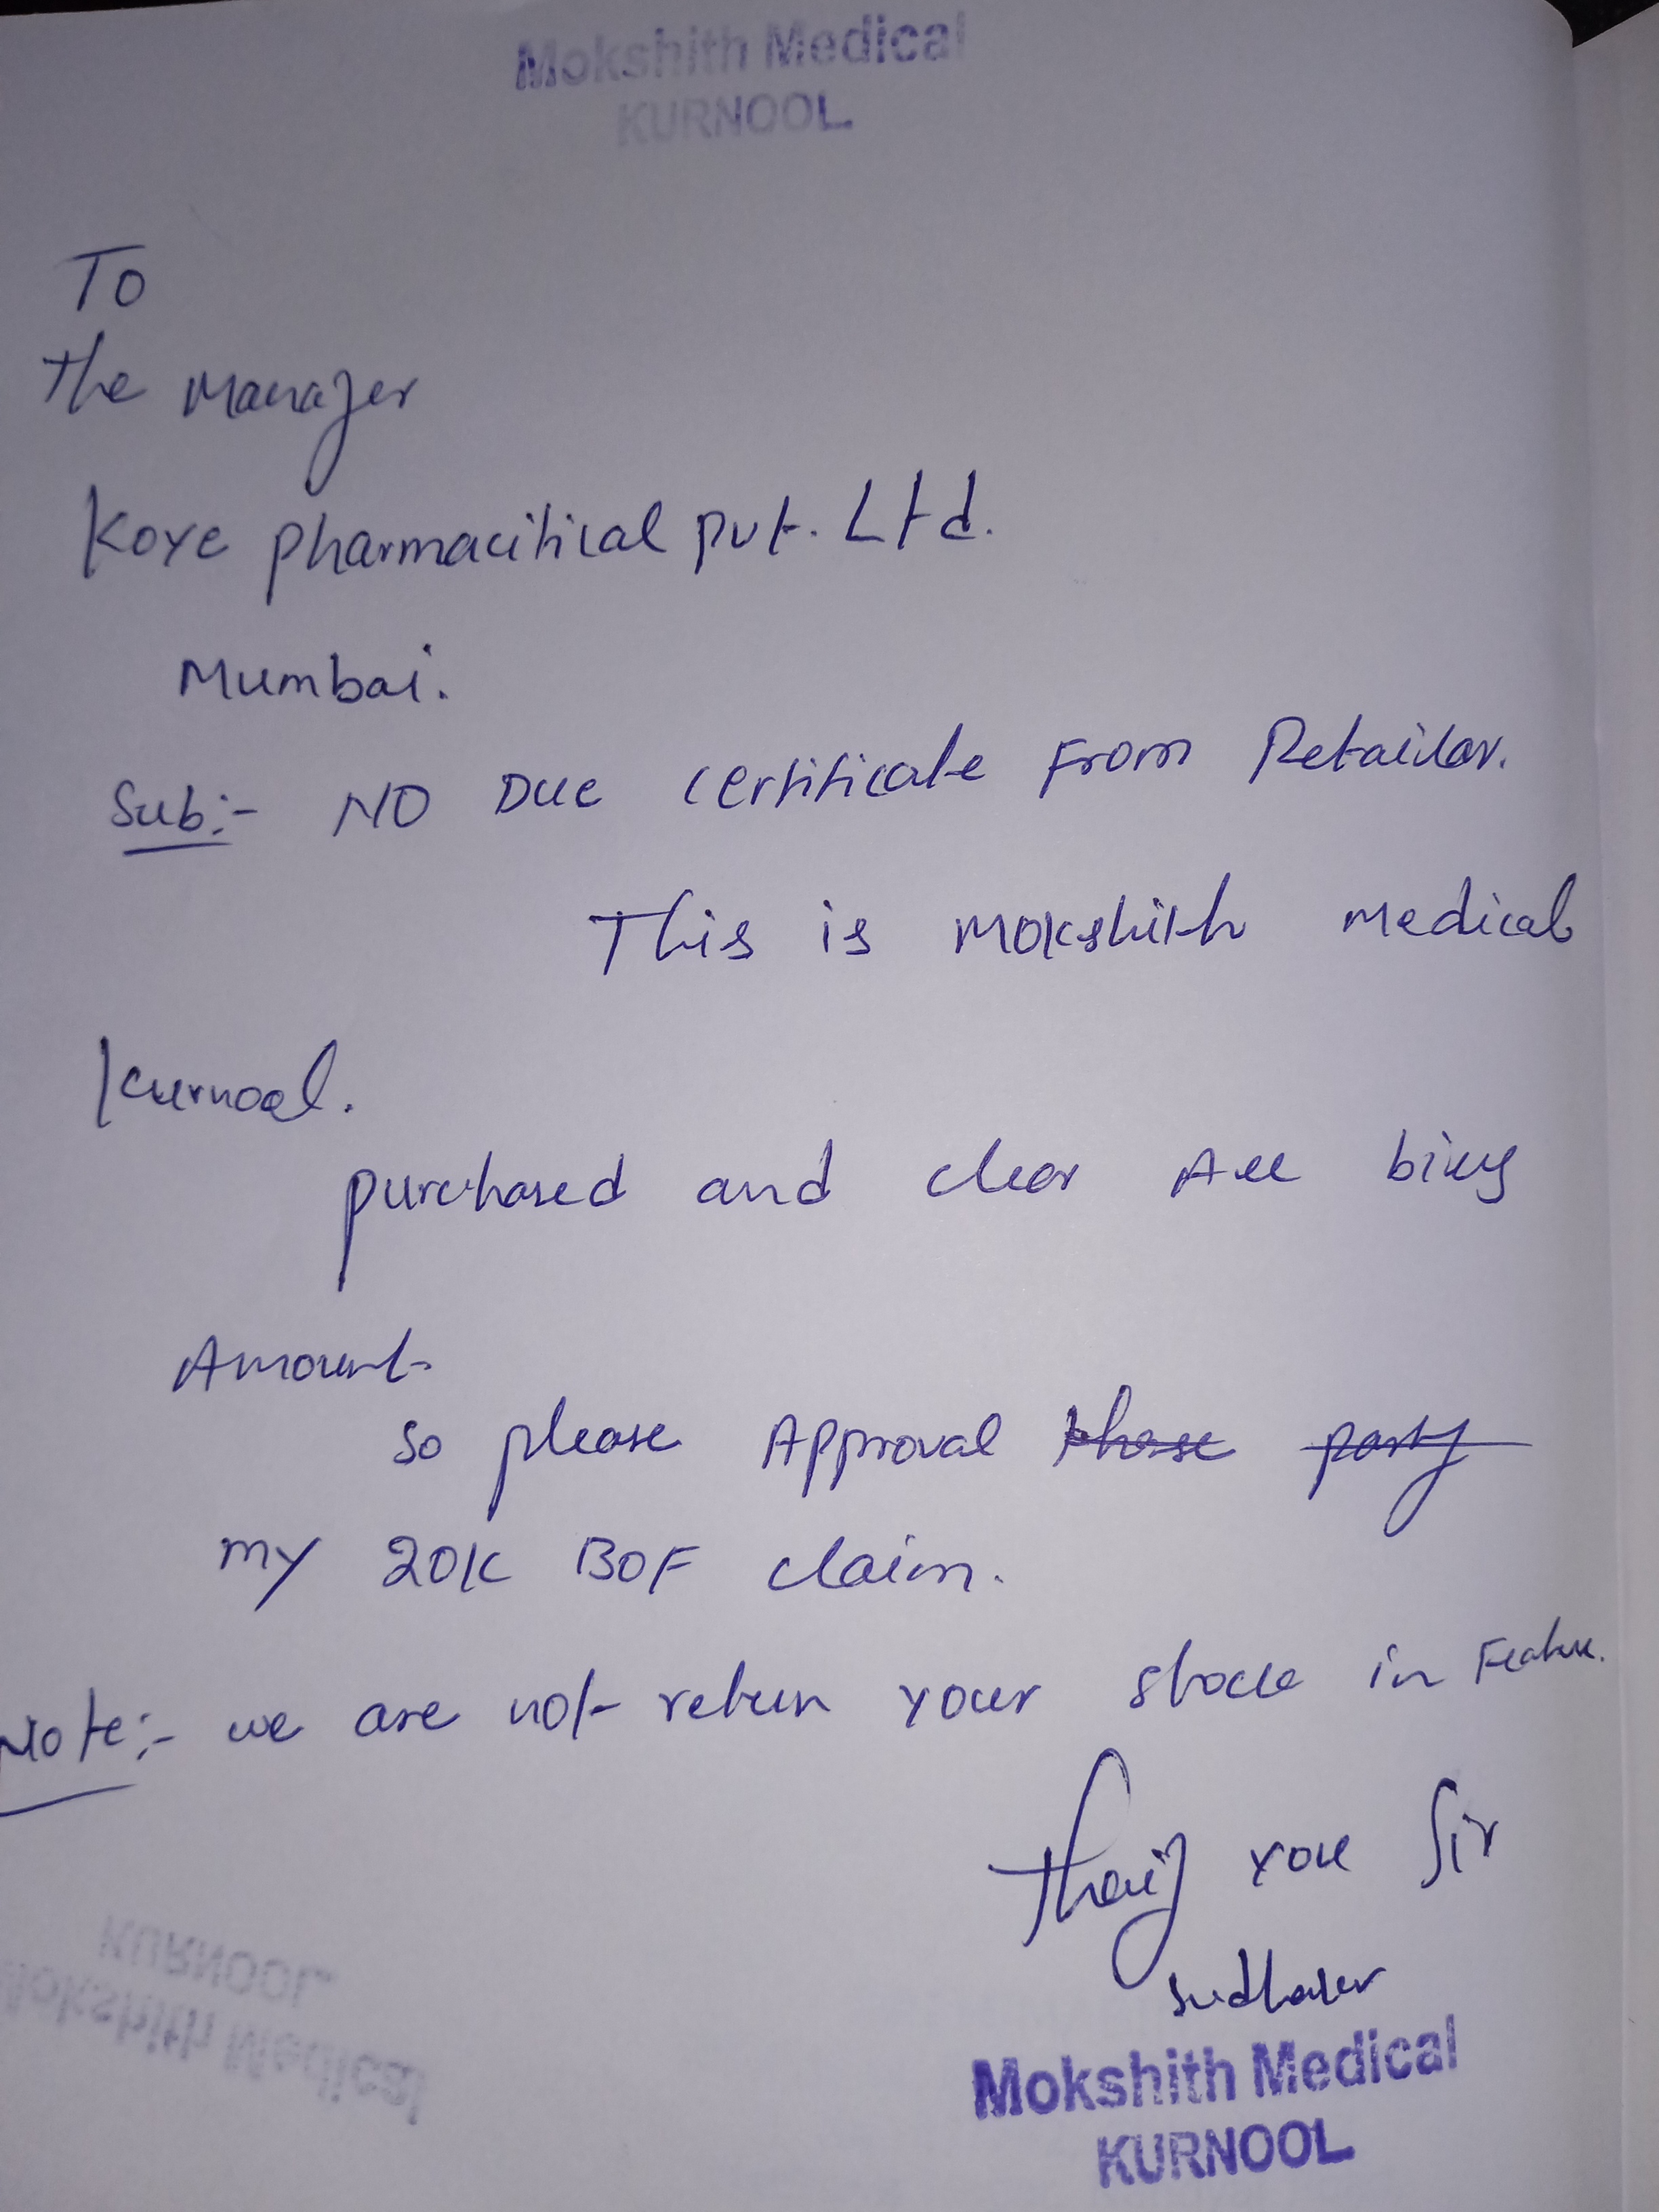 Mokshith Medical
KURNOOL
To
The Manager
Koye pharmacitical pvt. Ltd.
Mumbai.
Sub:- NO Due certificate From Retailor.
This is Mokshith Medical
Kurnool.
purchased and clear All bills
Amount
so please Approval those party
my 20K BOF claim.
Note:- we are not return your stock in Feature.
you Sir
Mokshith Medical
KURNOOL
KURNOOL
Mokshith Medical